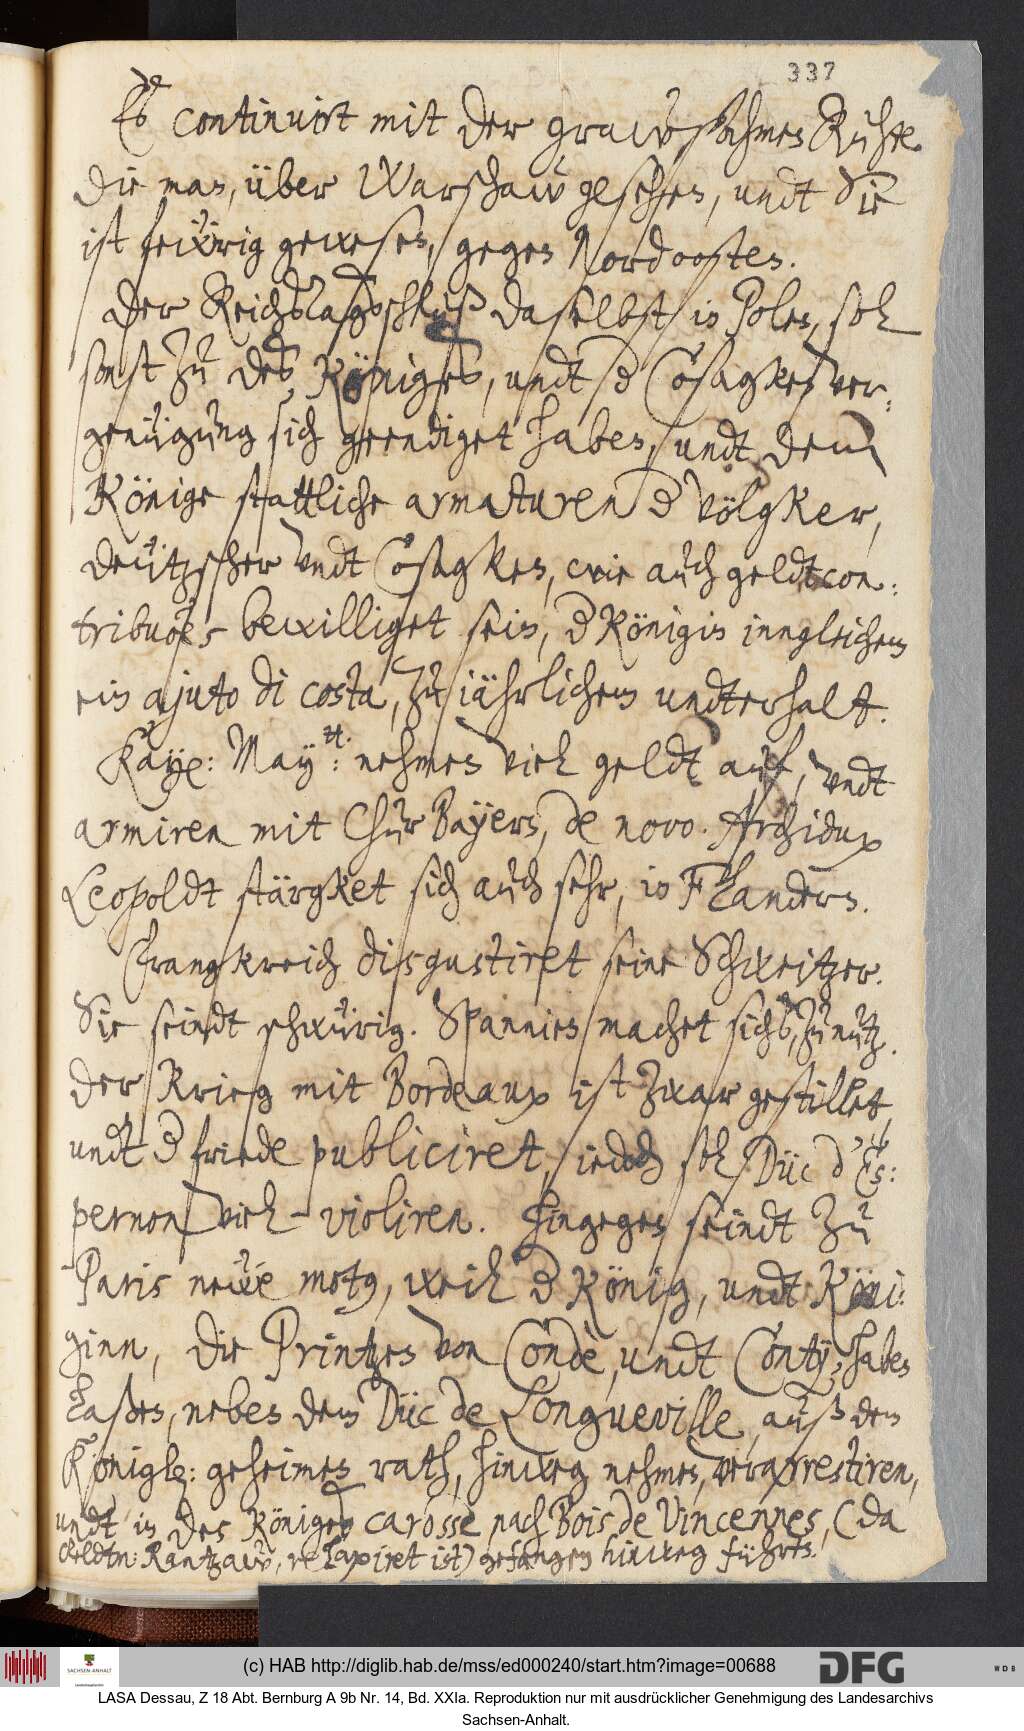 337
Es continuirt mit der grawsahmen Ruhte
die man, über Warschaw gesehen, undt Sie
ist fewrig gewesen, gegen Nordoosten.
Der Reichstagsschluß daselbst in Polen, soll
sonst zu des Königes, undt d Cosagken ver¬:
genügung sich geendiget haben, undt dem
Könige stattliche armaturen d völgker,
deützscher undt Cosagken, wie auch geldtcon¬:
tribuç̃es bewilliget sein, d Königin inngleichem
ein ajuto di costa, zu iährlichem undterhalt.
Kaye: May:tt: nehmen viel geldt auf, undt
armiren mit Chur Bayern, de novo. Archidux
Leopoldt stärgket sich auch sehr, in Flandern.
Frangkreich disgustiret seine Schweitzer.
Sie seindt schwürig. Spannien machet sichs, zu nutz.
Der Krieg mit Bordeaux ist zwar gestillet
undt d friede publiciret, iedoch soll Düc d'Es:
pernon viel violiren. Hingegen seindt zu
Paris newe motg, weil d König, undt Köni:
ginn, die Printzen von Condè, undt Conty, haben
laßen, neben dem Düc de Longueville, auß dem
Königl: geheimen rath, hinweg nehmen, verarrestiren,
undt in des Königes carosse nach Bois de Vincennes, (da
Veldtm: Rantzaw, relaxiret ist) gefangen hinweg führen.
(c) HAB http://diglib.hab.de/mss/ed000240/start.htm?image=00688
SACHSEN-ANHALT
DFG
WDB
LASA Dessau, Z 18 Abt. Bernburg A 9b Nr. 14, Bd. XXIa. Reproduktion nur mit ausdrücklicher Genehmigung des Landesarchivs
Sachsen-Anhalt.